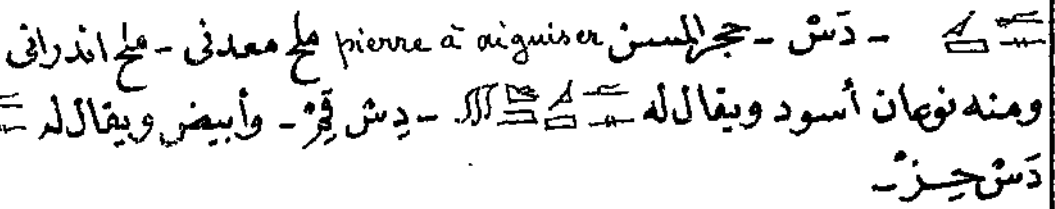 ـ دَسْ ـ حجر المسن pierre à aiguiser ملح معدنى ـ ملح اندرانى
ومنه نوعان أسود ويقال له ـ دِسْ قِمْ ـ وأبيض ويقال له
دَسْ حِـزْ ـ